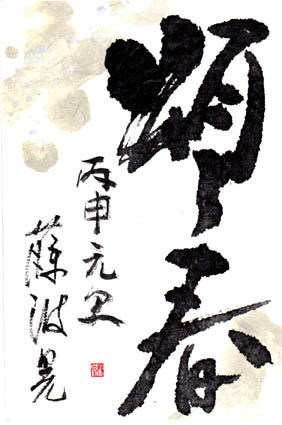 頌春
丙申元旦
藤波晃